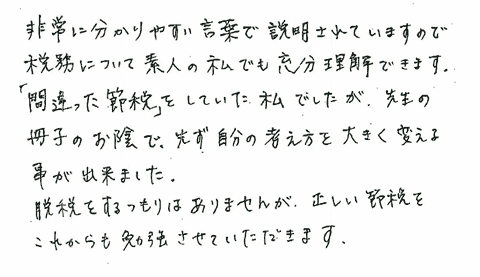 非常に分かりやすい言葉で説明されていますので
税務について素人の私でも充分理解できます。
「間違った節税」をしていた私でしたが、先生の
冊子のお陰で、先ず自分の考え方を大きく変える
事が出来ました。
脱税をするつもりはありませんが、正しい節税を
これからも勉強させていただきます。